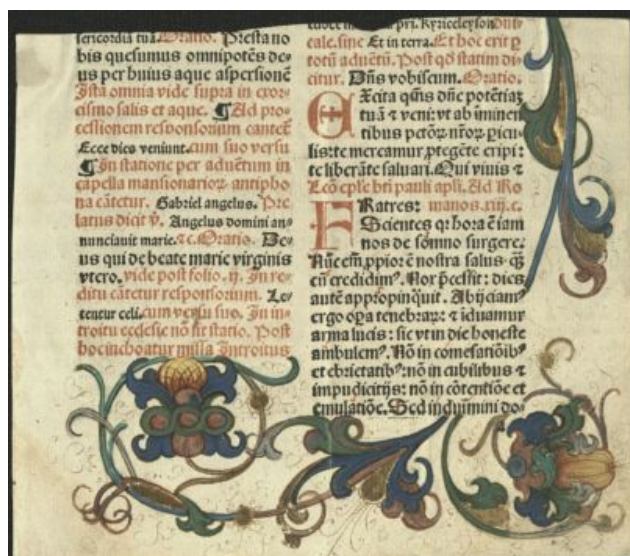 sericordia tuā. Oratio. Presta no
bis quesumus omnipotēs de⸗
us per huius aque aspersionē
Ista omnia vide supra in exor⸗
cismo salis et aque. ¶Ad pro⸗
cessionem responsorium cantet̄
Ecce dies veniunt. cum suo versu
¶In statione per aduentum in
capella mansionarioꝝ antipho
na cātetur. Gabriel angelus. Pre
latus dicit ℣. Angelus domini an⸗
nunciauit marie. ⁊c. Oratio. De⸗
us qui de beate marie virginis
vtero. vide post folio. ij. In re⸗
ditu cātetur responsorium. Le⸗
tentur celi. cum versu suo. In in⸗
troitu ecclesie nō fit statio. Post
hoc inchoatur missa Introitus
pri. Kyrieleyson
cale. sine Et in terra. Et hoc erit ꝑ
totū aduētū. Post qd̄ statim di
citur. Dn̄s vobiscum. Oratio.
EXcita qs̄ums dn̄e potētiaꝫ
tuā ⁊ veni: vt ab iminen
tibus pctōꝝ nr̄oꝝ ꝑicu
lis: te mereamur ꝓtegēte eripi:
te liberāte saluari. Qui viuis ⁊
Lcō eplē bt̄i pauli apl̄i. Ad Ro
FRatres: manos. xiij. c.
Scientes qꝛ hora ē iam
nos de sōmno surgere.
Nūc em̄ ꝓpior ē nostra salus qꝫ
cū credidimꝰ. Nox p̄cessit: dies
autē appropinquit. Abijciamꝰ
ergo oꝑa tenebraꝝ: ⁊ iduamur
arma lucis: sic vt in die honeste
ambulemꝰ. Nō in comesatiōibꝰ
et ebrietatibꝰ: nō in cubilibus ⁊
impudicitijs: nō in cōtentiōe et
emulatiōe. Sed induimini do⸗